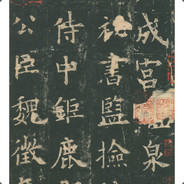 成宮泉
祕書監撿
侍中鉅鹿
公臣魏徵